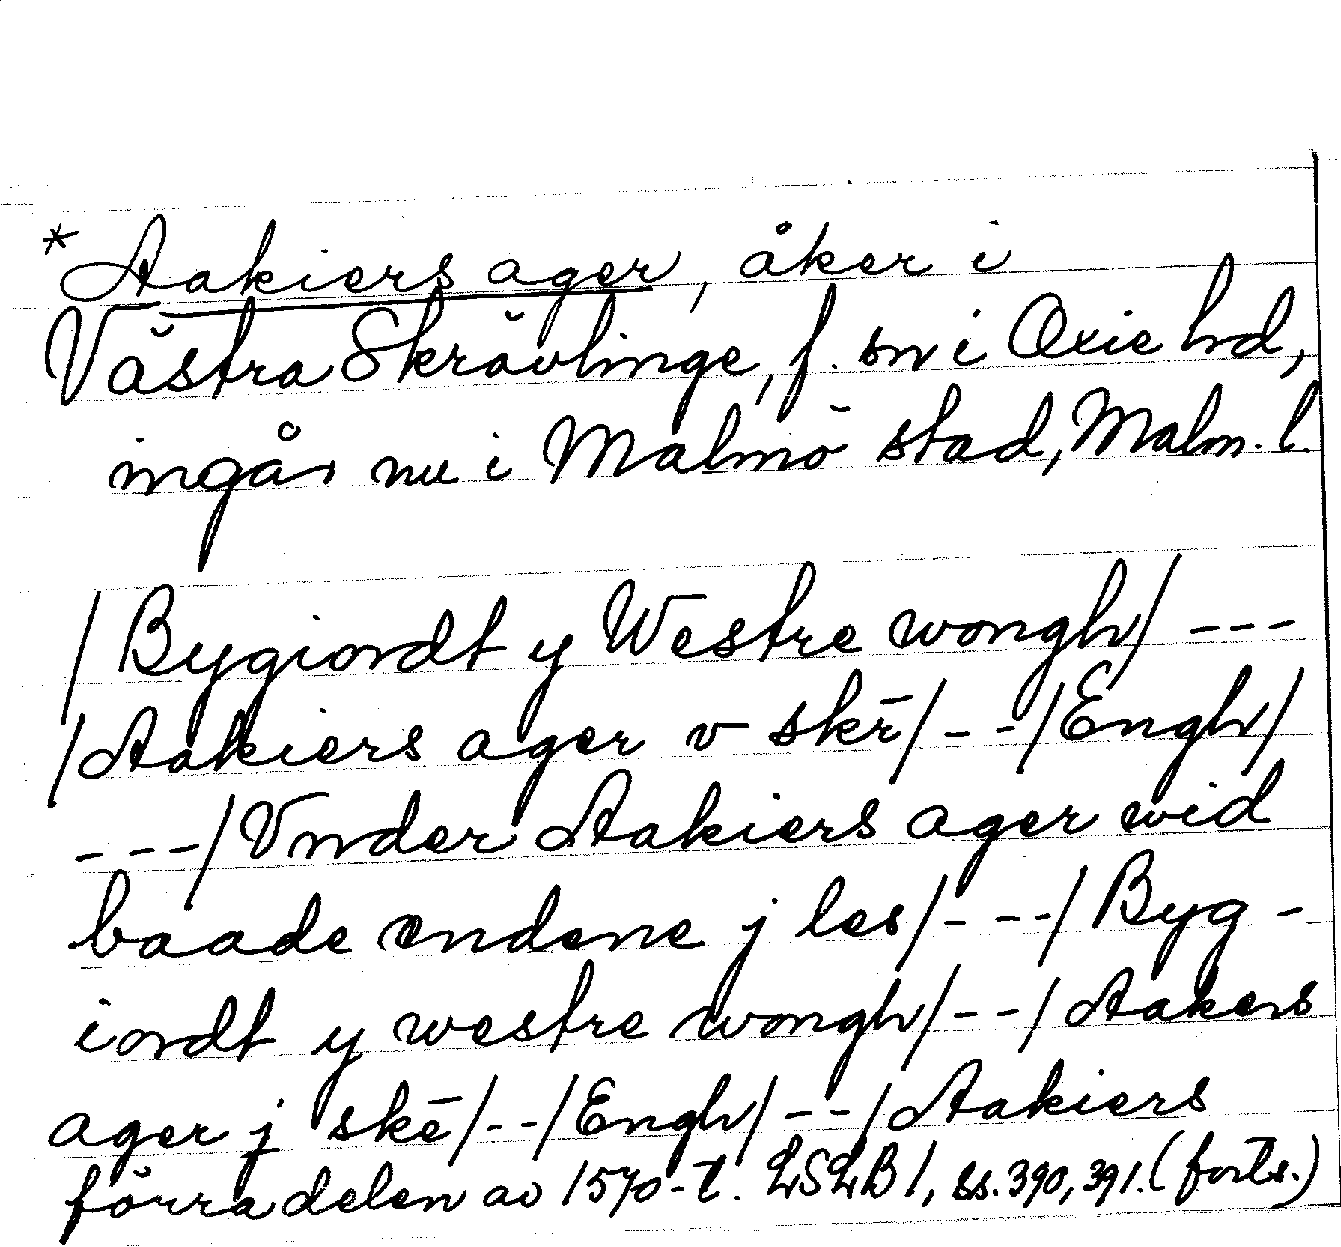 *Aakiers ager, åker i
Västra Skrävlinge, f. sn i Oxie hd,
ingår nu i Malmö stad, Malm. l.
/Bygiordt y Westre wongh/ ---
/Aakiers ager v skē/ -- /Engh/
---/Vnder Aakiers ager wid
baade endene j les/ --- /Byg-
iordt y westre wongh/ -- /Aakers
ager j skē/ -- /Engh/ -- /Aakiers
förra delen av 1570-t. LSLB 1, ss. 390, 391. (forts.)